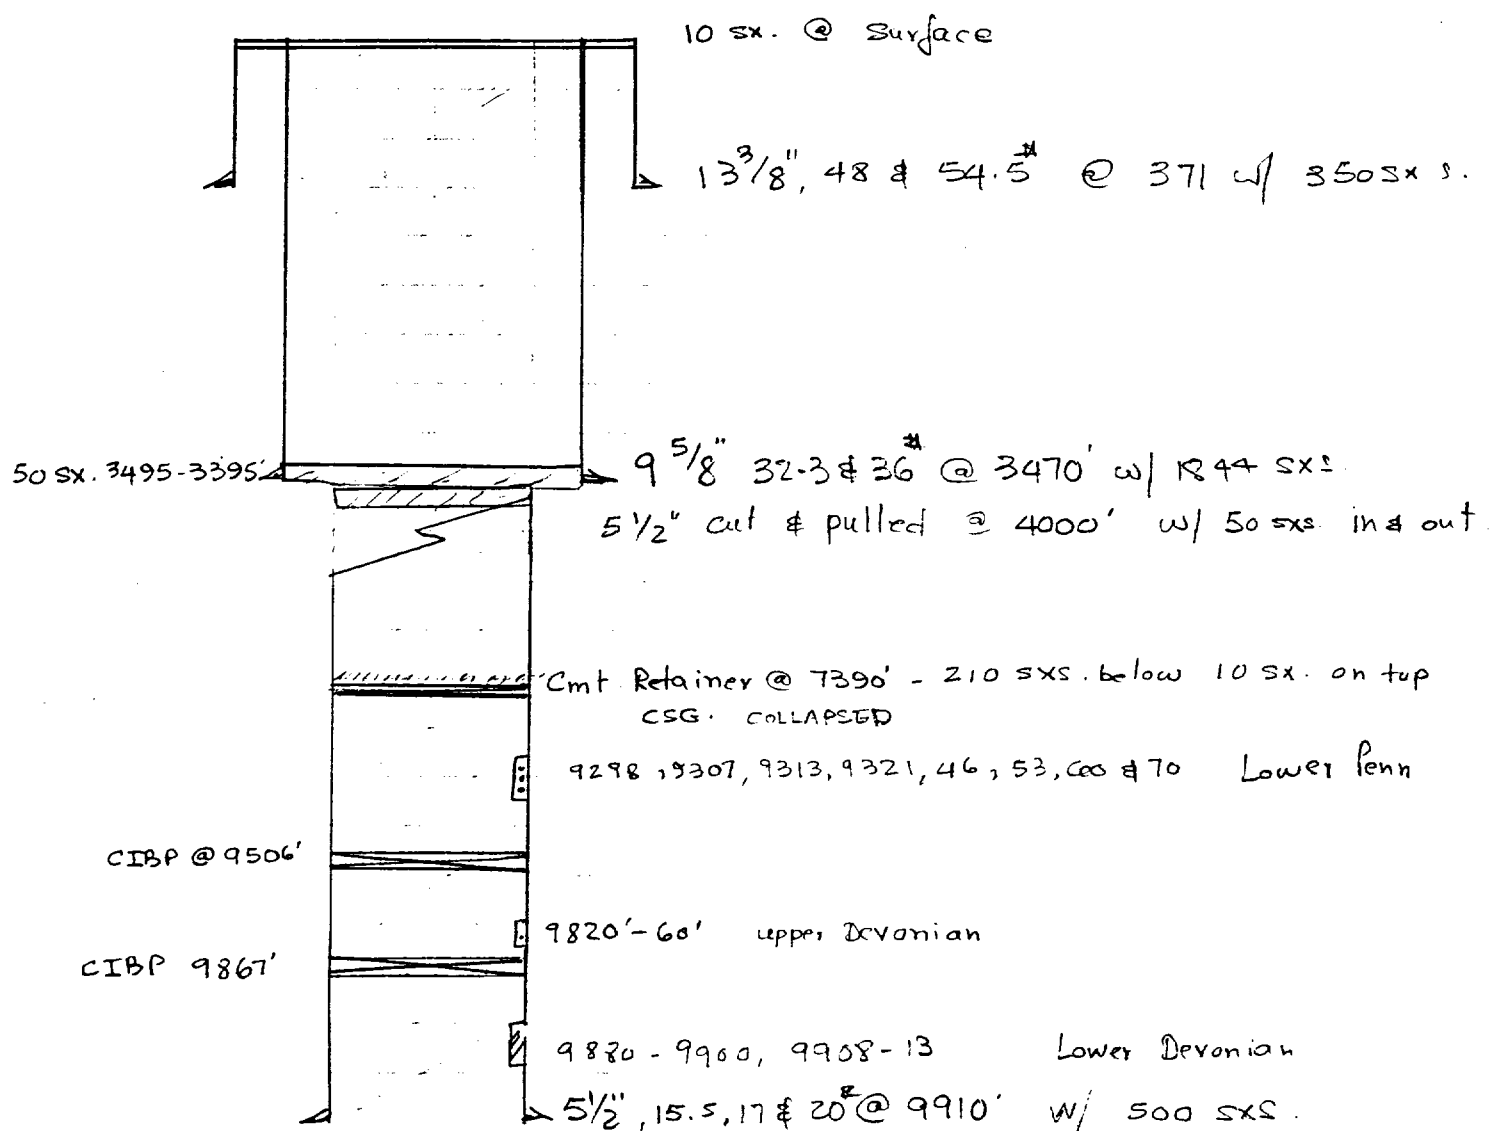 10 sx. @ surface
13 3/8", 48 & 54.5# @ 371 w/ 350 sxs.
50 sx. 3495-3395'
9 5/8" 32.3 & 36# @ 3470' w/ 1844 sxs
5 1/2" cut & pulled @ 4000' w/ 50 sxs in & out
Cmt Retainer @ 7390' - 210 sxs. below 10 sx. on top
CSG. COLLAPSED
9298, 9307, 9313, 9321, 46, 53, 60 & 70 Lower Penn
CIBP @ 9506'
9820'-60' upper Devonian
CIBP 9867'
9880 - 9900, 9908-13 Lower Devonian
5 1/2", 15.5, 17 & 20# @ 9910' w/ 500 sxs.